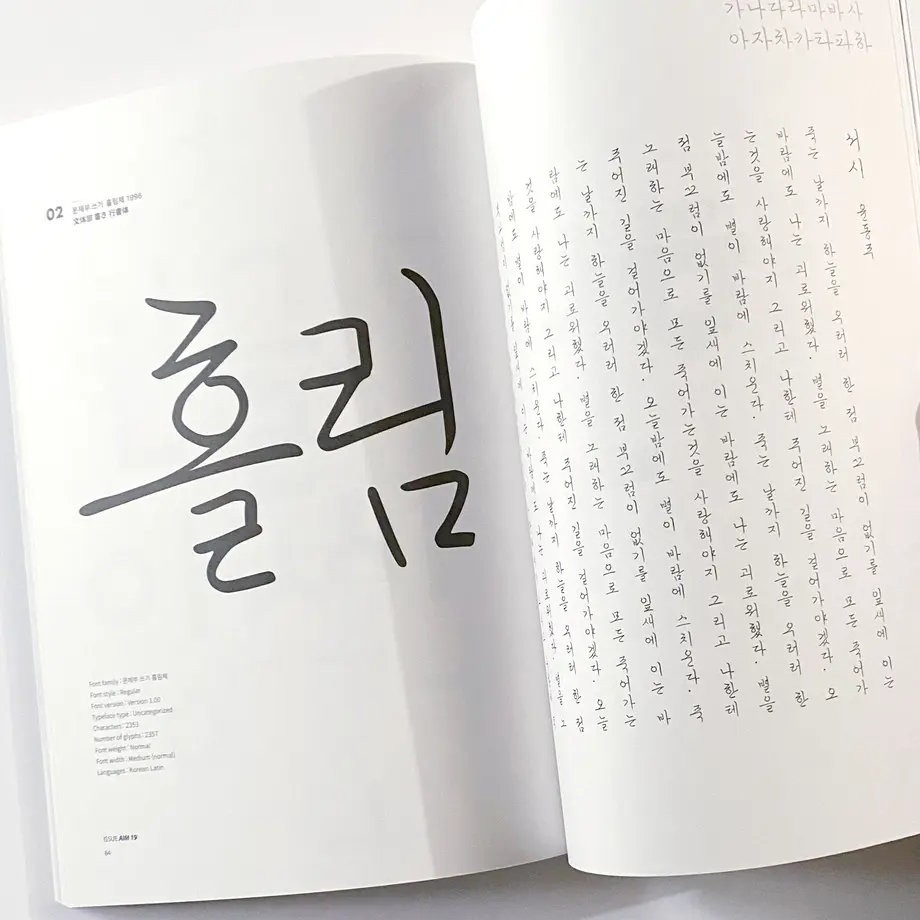 02
문체부 쓰기 흘림체 1996
文体部 書き 行書体
흘림
Font family : 문체부 쓰기 흘림체
Font style : Regular
Font version : Version 1.00
Typeface type : Uncategorized
Characters : 2353
Number of glyphs : 2357
Font weight : Normal
Font width : Medium (normal)
Languages : Korean Latin
ISSUE AIM 19
64
가나다라마바사
아자차카타파하
서시 윤동주
죽는 날까지 하늘을 우러러 한 점 부끄럼이 없기를 잎새에 이는
바람에도 나는 괴로워했다. 별을 노래하는 마음으로 모든 죽어가
는것을 사랑해야지 그리고 나한테 주어진 길을 걸어가야겠다. 오
늘밤에도 별이 바람에 스치운다. 죽는 날까지 하늘을 우러러 한
점 부끄럼이 없기를 잎새에 이는 바람에도 나는 괴로워했다. 별을
노래하는 마음으로 모든 죽어가는것을 사랑해야지 그리고 나한테
주어진 길을 걸어가야겠다. 오늘밤에도 별이 바람에 스치운다. 죽
는 날까지 하늘을 우러러 한 점 부끄럼이 없기를 잎새에 이는 바
람에도 나는 괴로워했다. 별을 노래하는 마음으로 모든 죽어가는
것을 사랑해야지 그리고 나한테 주어진 길을 걸어가야겠다. 오늘
밤에도 별이 바람에 스치운다. 죽는 날까지 하늘을 우러러 한 점